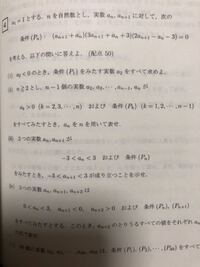 4 a₁=1とする. nを自然数とし, 実数 aₙ, aₙ₊₁ に対して, 次の
条件 (Pₙ) : (aₙ₊₁+aₙ)(3aₙ₊₁+aₙ+3)(2aₙ₊₁−aₙ−3)=0
を考える. 以下の問いに答えよ. (配点 50)
(i) a₂<0 のとき, 条件 (P₁) をみたす実数 a₂ をすべて求めよ.
(ii) n≧2とし, n−1個の実数 a₂, a₃, ⋯, aₙ₋₁, aₙ が
aₖ>0 (k=2, 3, ⋯, n) および 条件 (Pₖ) (k=1, 2, ⋯, n−1)
をすべてみたすとき, aₙ を n を用いて表せ.
2つの実数 aₙ, aₙ₊₁ が
−3<aₙ<3 および 条件 (Pₙ)
をみたすとき, −3<aₙ₊₁<3 が成り立つことを示せ.
3つの実数 aₙ, aₙ₊₁, aₙ₊₂ は
0<aₙ<3, aₙ₊₁<0, aₙ₊₂>0 および 条件 (Pₙ),
をすべてみたすとする. このとき, aₙ₊₂ のとりうるすべての値をそれぞれ aₙ
は, 条件 (P₁), (P₂), ⋯, をすべて